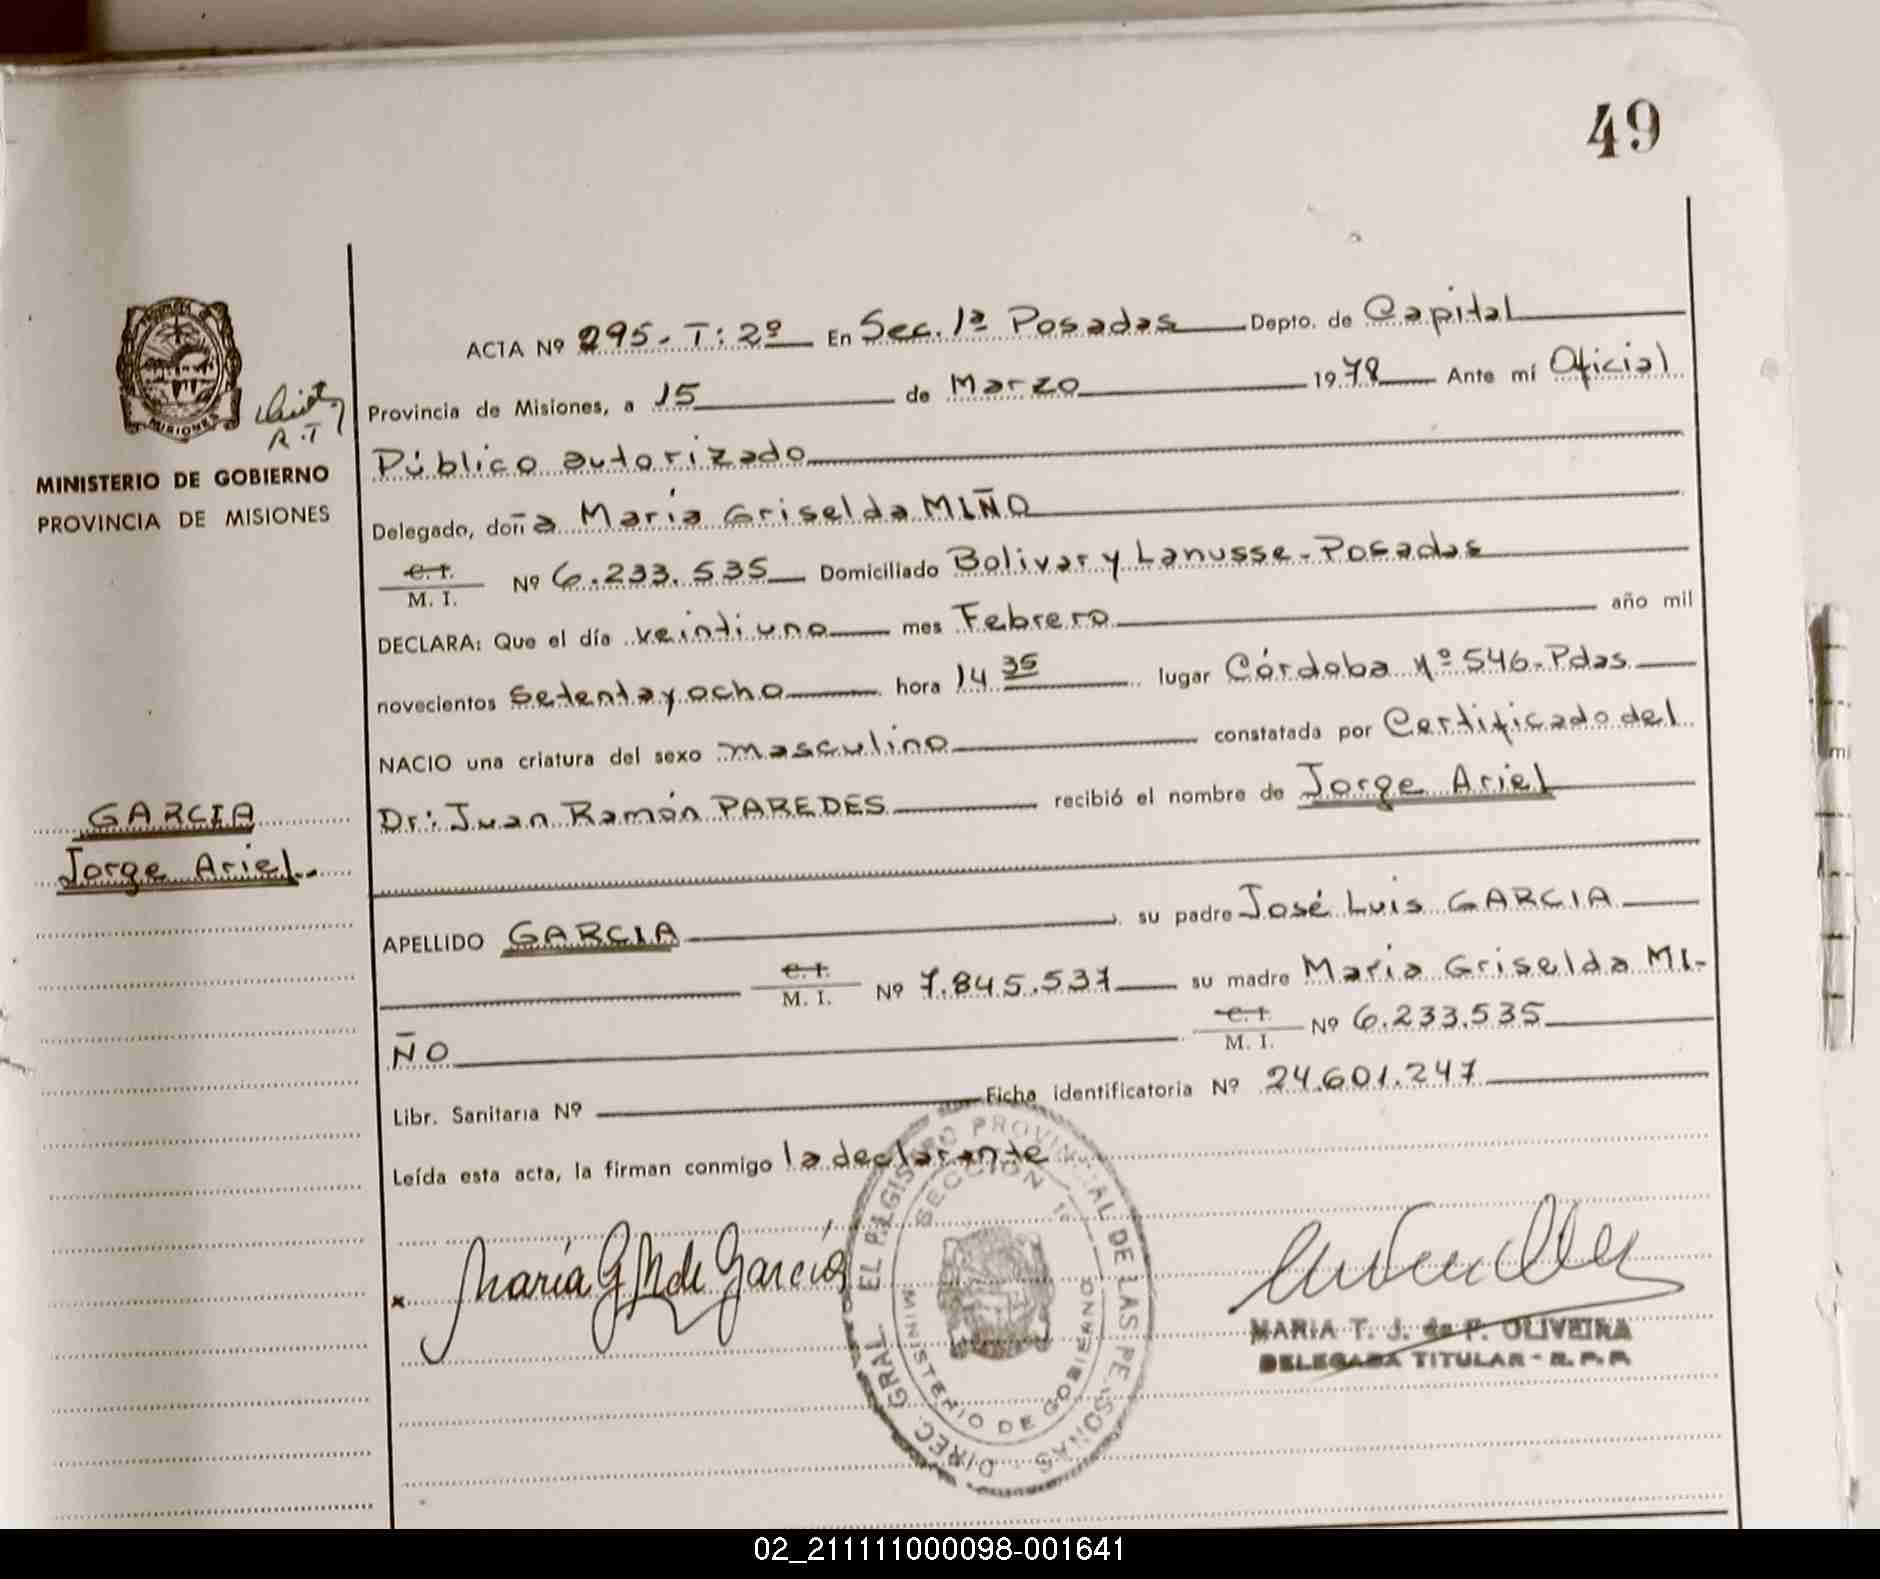 49
ACTA Nº 295. T: 2º En Sec. 1ª Posadas Depto. de Capital
Provincia de Misiones, a 15 de Marzo 1978 Ante mí Oficial
Público autorizado
MINISTERIO DE GOBIERNO
PROVINCIA DE MISIONES
MISIONES
R.T
Delegado, doña María Griselda MIÑO
C. I.
M. I. Nº 6.233.535 Domiciliado Bolivar y Lanusse - Posadas
DECLARA: Que el día veintiuno mes Febrero año mil
novecientos setenta y ocho hora 14 35 lugar Córdoba Nº 546 - Pdas
NACIO una criatura del sexo masculino constatada por Certificado del
Dr: Juan Ramón PAREDES recibió el nombre de Jorge Ariel
GARCIA
Jorge Ariel.-
APELLIDO GARCIA su padre José Luis GARCIA
C. I.
M. I. Nº 7.845.537 su madre María Griselda MI-
ÑO C. I.
M. I. Nº 6.233.535
Libr. Sanitaria Nº Ficha identificatoria Nº 24.601.247
Leída esta acta, la firman conmigo la declarante
x María G M de García
DIREC. GRAL. EL REGISTRO PROVINCIAL DE LAS PERSONAS
SECCION 1ª
MINISTERIO DE GOBIERNO
MARIA T. J. de P. OLIVEIRA
DELEGADA TITULAR - R. P. P.
02_211111000098-001641